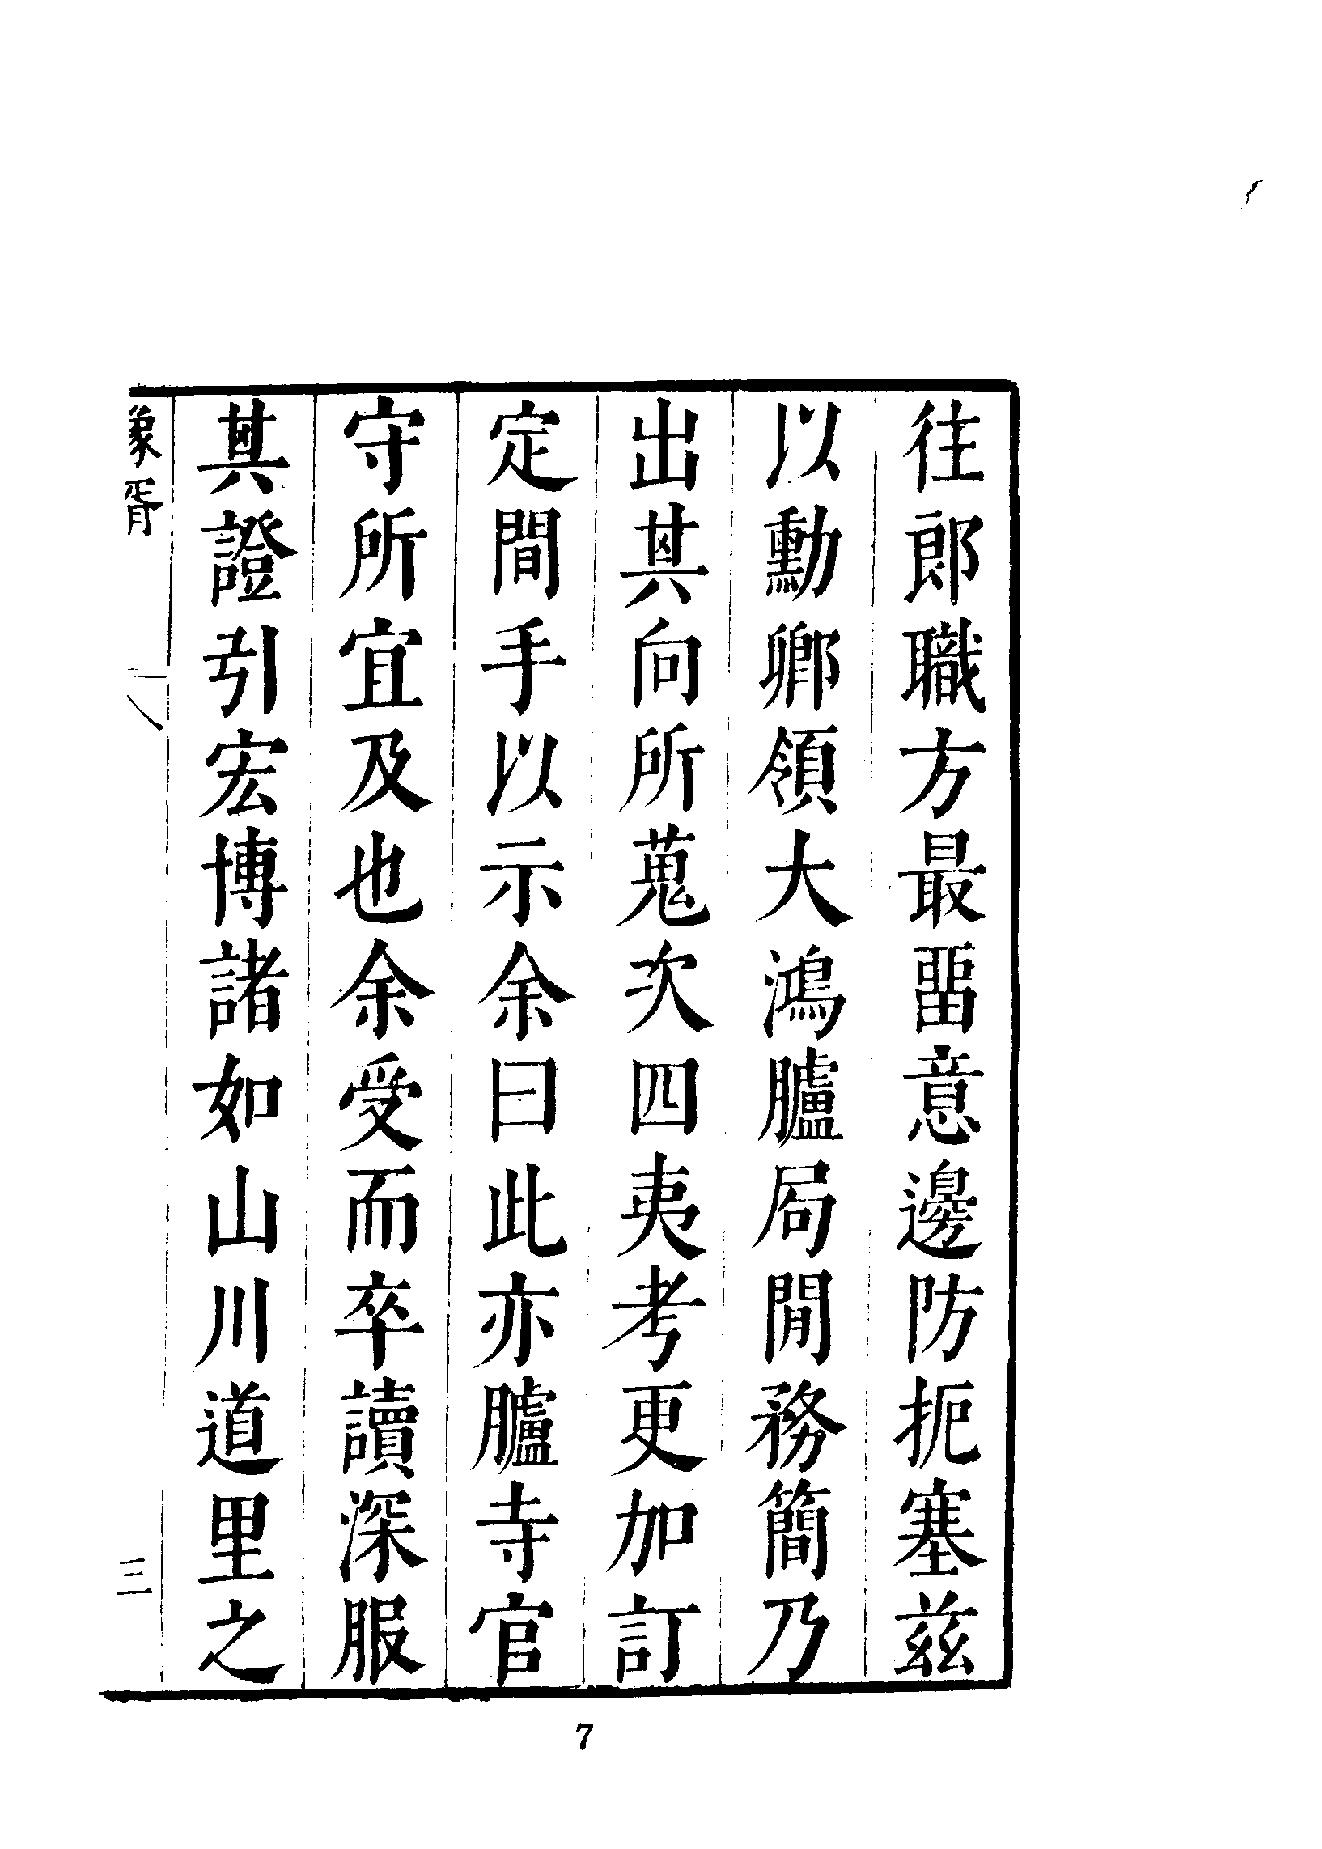 往郎職方最畱意邊防扼塞兹
以勳卿領大鴻臚局閒務簡乃
出其向所蒐次四夷考更加訂
定間手以示余曰此亦臚寺官
守所宜及也余受而卒讀深服
其證引宏博諸如山川道里之
象胥
三
7